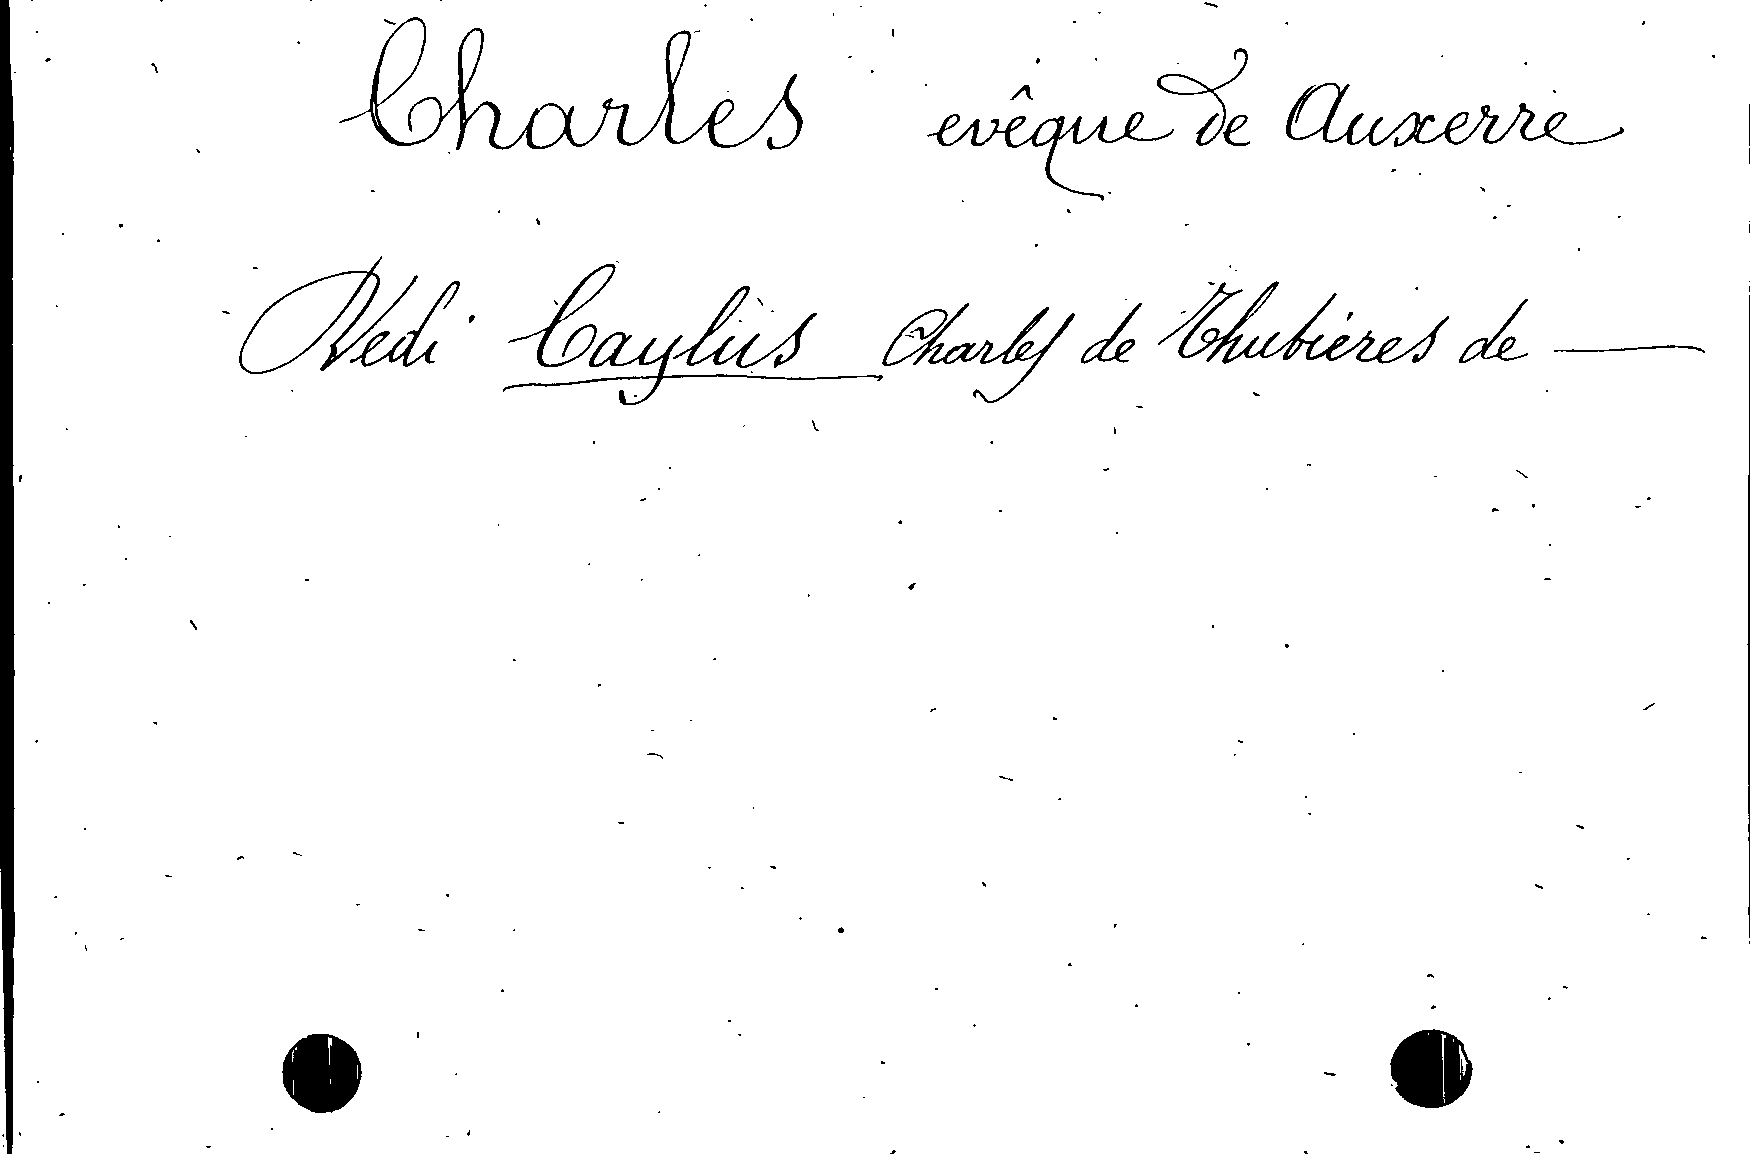 Charles evêque de Auxerre
Vedi Caylus Charles de Thubières de —